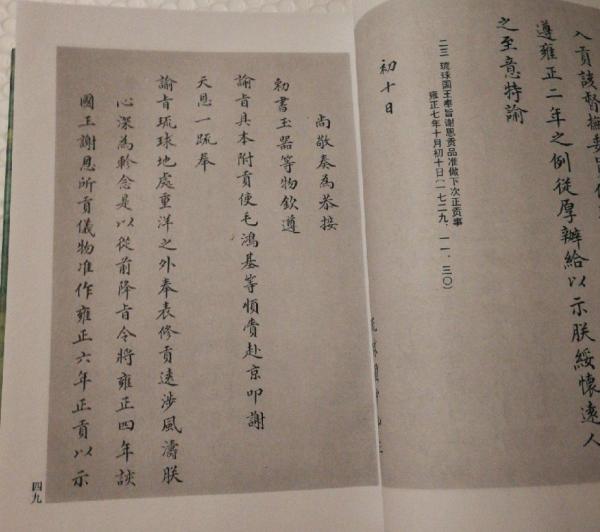 入貢該督撫委
遵雍正二年之例從厚辦給以示朕綏懷遠人
之至意特諭
二三 琉球国王奉旨谢恩贡品准做下次正贡事
雍正七年十月初十日(一七二九、一一、三〇)
初十日
尚敬奏為恭接
勅書玉器等物欽遵
諭旨具本附貢使毛鴻基等順賫赴京叩謝
天恩一疏奉
諭旨琉球地處重洋之外奉表修貢遠涉風濤朕
心深為軫念是以從前降旨令將雍正四年該
國王謝恩所貢儀物准作雍正六年正貢以示
四九